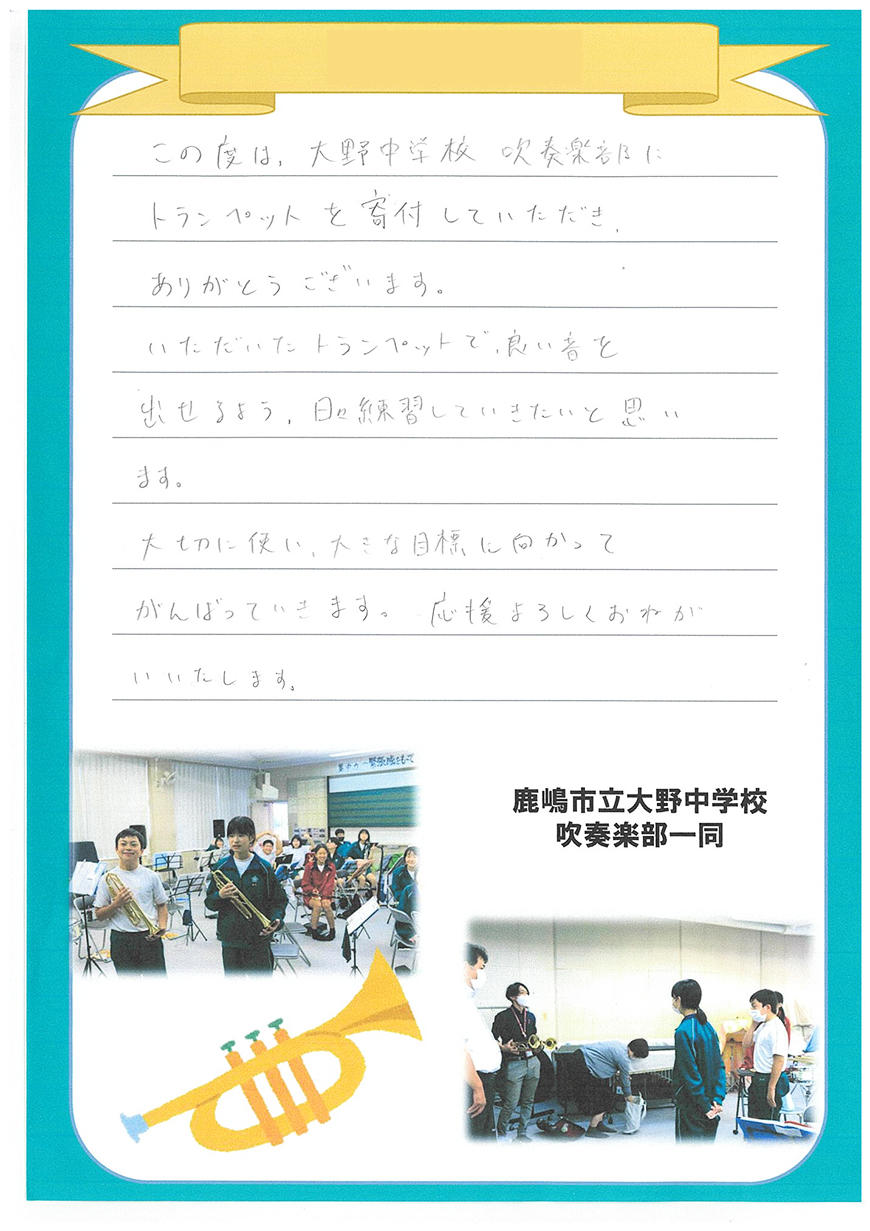 この度は、大野中学校 吹奏楽部に
トランペットを寄付していただき、
ありがとうございます。
いただいたトランペットで、良い音を
出せるよう、日々練習していきたいと思い
ます。
大切に使い、大きな目標に向かって
がんばっていきます。応援よろしくおねが
いいたします。
鹿嶋市立大野中学校
吹奏楽部一同